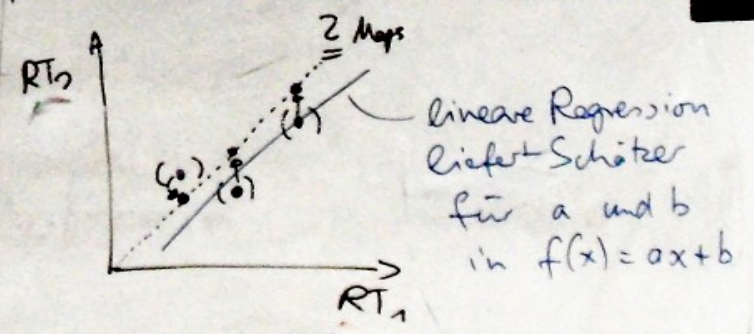 2 Maps
RT₂
lineare Regression
liefert Schätzer
für a und b
in f(x) = ax + b
RT₁